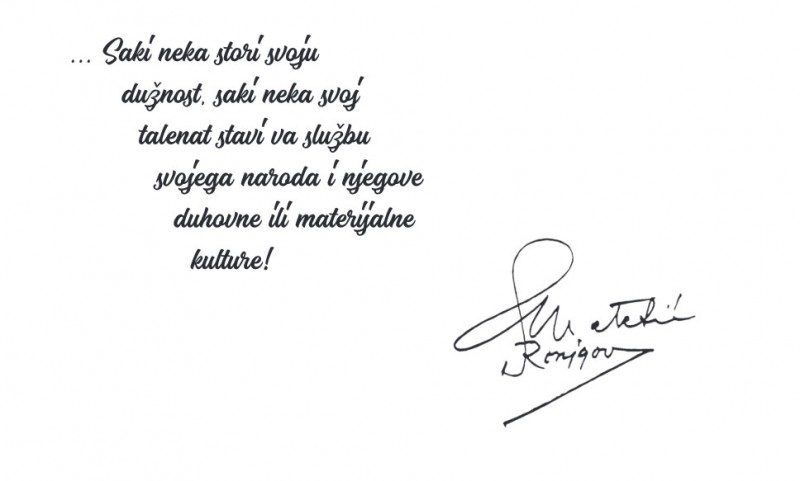 ... Saki neka stori svoju
dužnost, saki neka svoj
talenat stavi va službu
svojega naroda i njegove
duhovne ili materijalne
kulture!
Matetić
Ronjgov